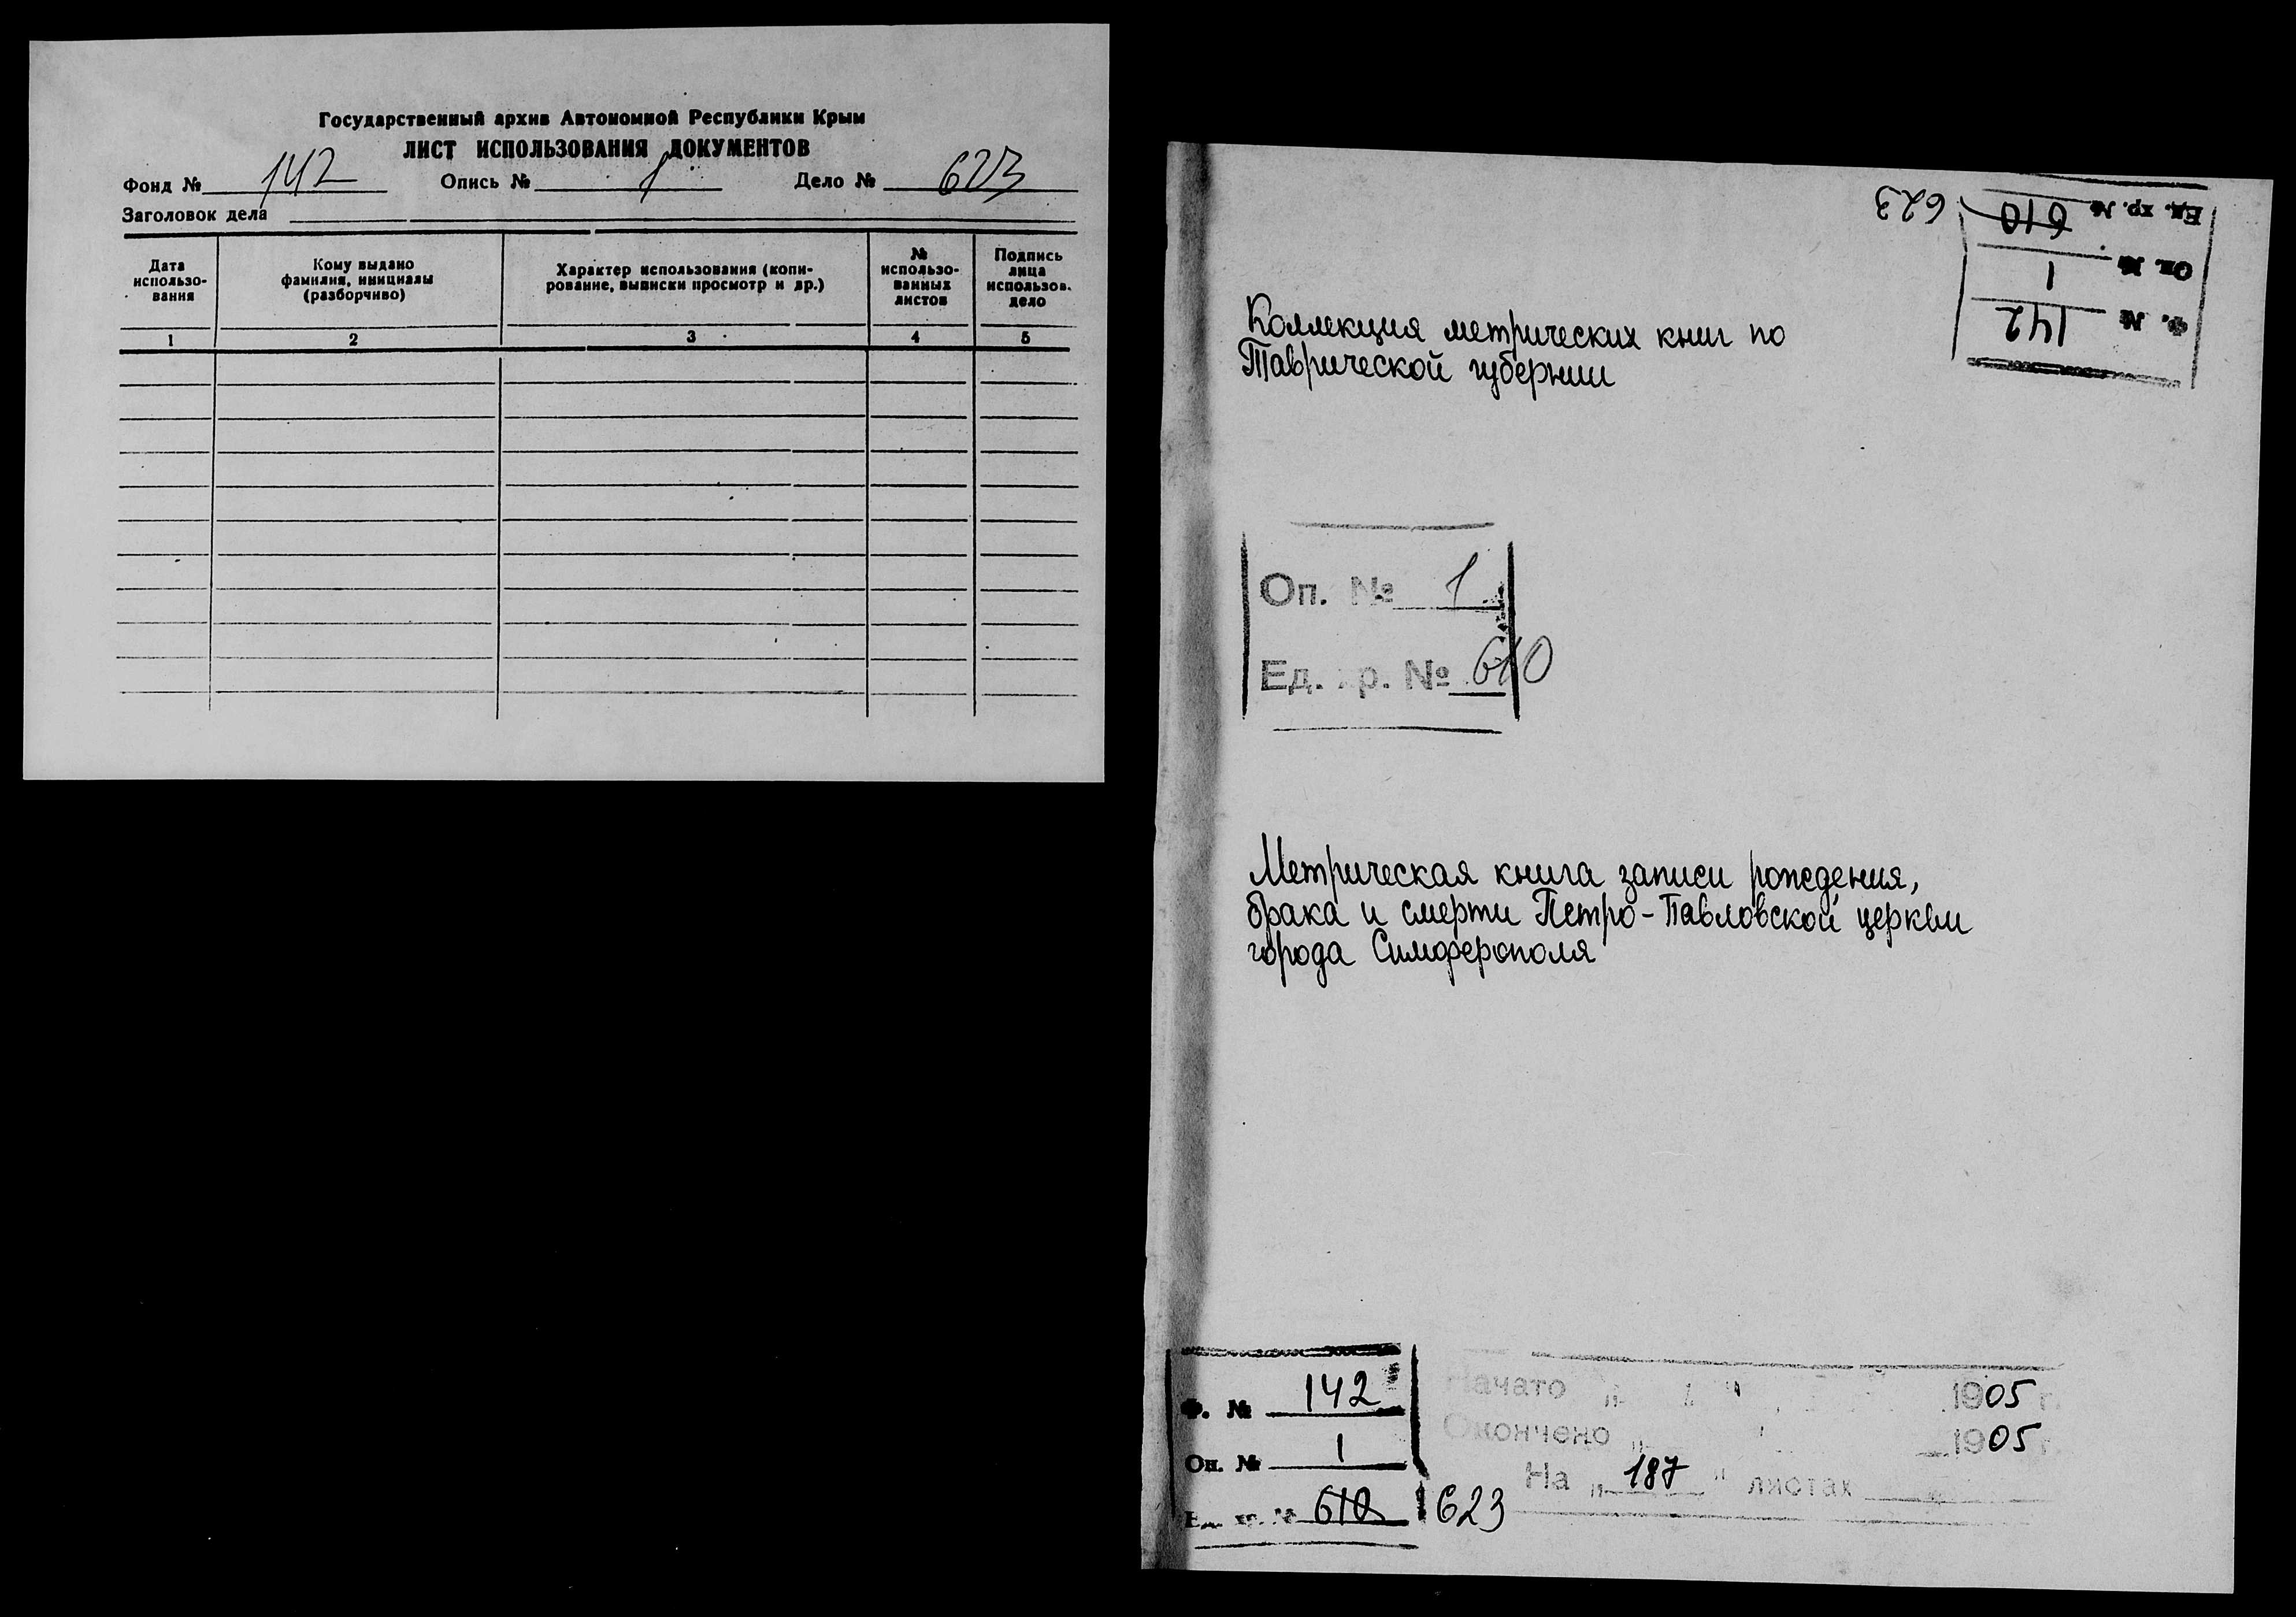 Государственный архив Автономной Республики Крым
ЛИСТ ИСПОЛЬЗОВАНИЯ ДОКУМЕНТОВ
Фонд № 142 Опись № 1 Дело № 623
Заголовок дела
Дата использо-вания
Кому выдано фамилия, инициалы (разборчиво)
Характер использования (копи-рование, выписки просмотр и др.)
№ использо-ванных листов
Подпись лица использов. дело
1 2 3 4 5
Ф. № 142
Оп. № 1
Ед. хр. № 610 623
Коллекция метрических книг по
Таврической губернии
Оп. № 1
Ед. хр. № 610
Метрическая книга записи рождения,
брака и смерти Петро-Павловской церкви
города Симферополя
Ф. № 142
Оп. № 1
Ед. хр. № 610 623
Начато " " 1905 г.
Окончено " " 1905 г.
На " 187 " листах